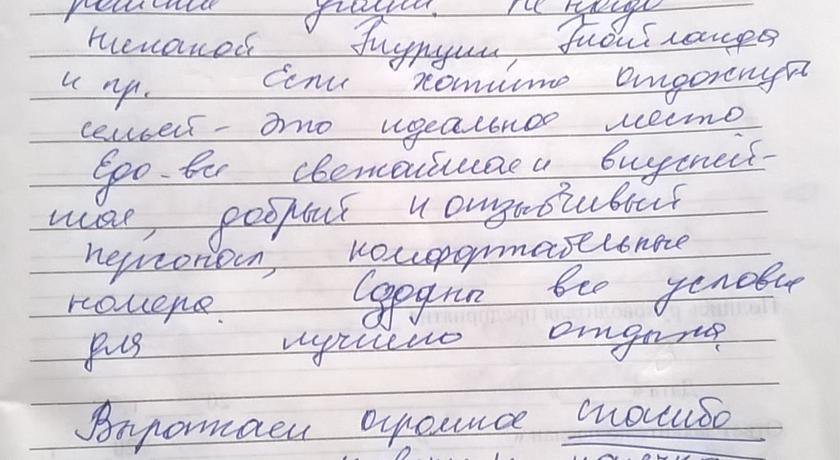 не надо
никакой Турции, Тайланда
и пр. Если хотите отдохнуть
семьёй - это идеальное место
Еда - все свежайшая и вкусней-
шая, добрый и отзывчивый
персонал, комфортабельные
номера. Созданы все условия
для лучшего отдыха.
Выражаем огромное спасибо